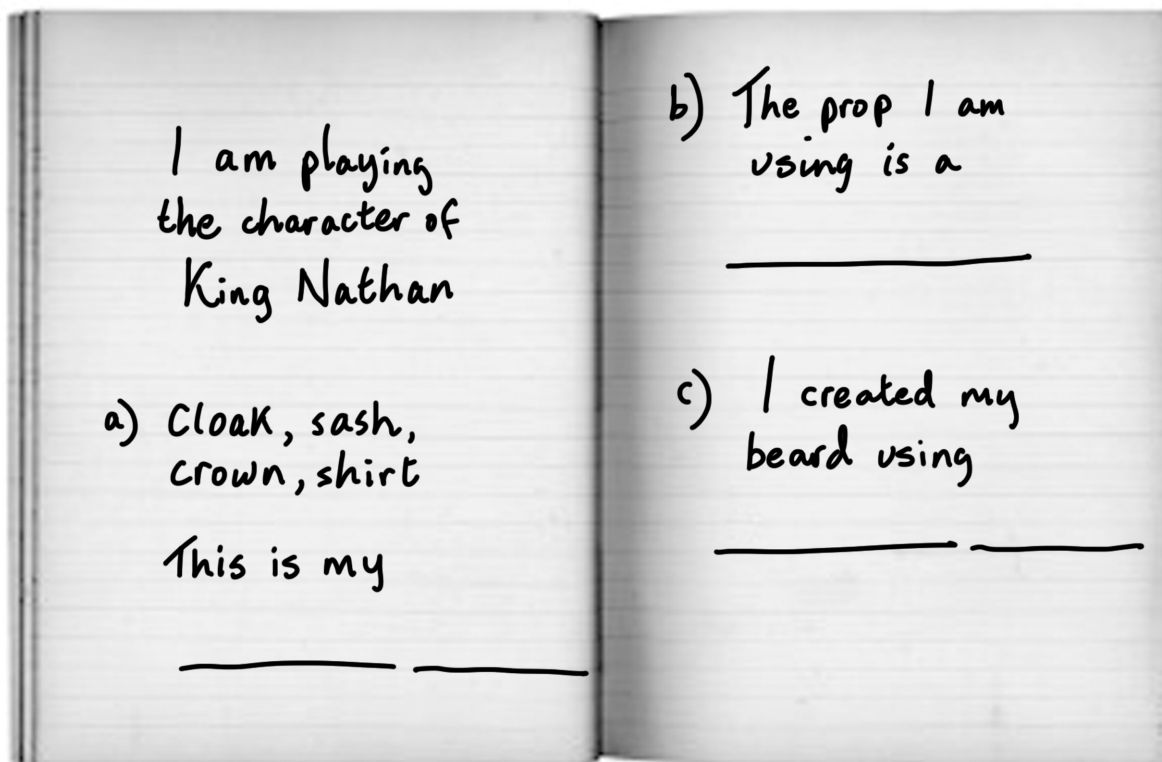 I am playing
the character of
King Nathan
a) Cloak, sash,
crown, shirt
This is my
b) The prop I am
using is a
c) I created my
beard using